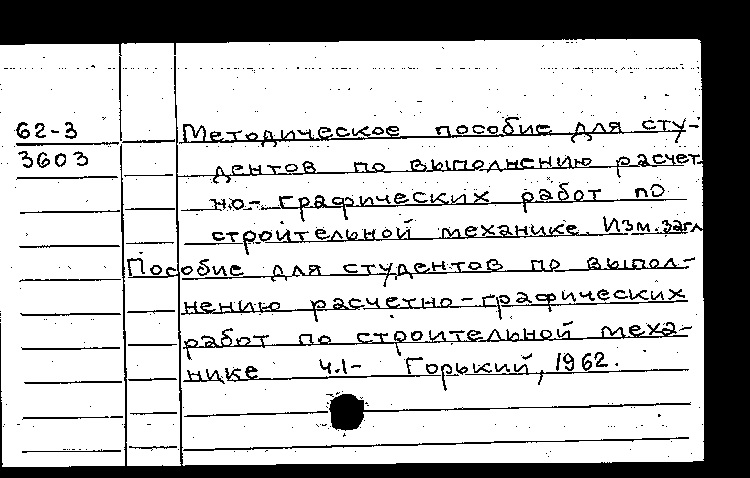 62-3 Методическое пособие для сту-
3603 дентов по выполнению расчет
но-графических работ по
строительной механике. Изм. загл
Пособие для студентов по выпол-
нению расчетно-графических
работ по строительной меха-
нике Ч.1- Горький, 1962.